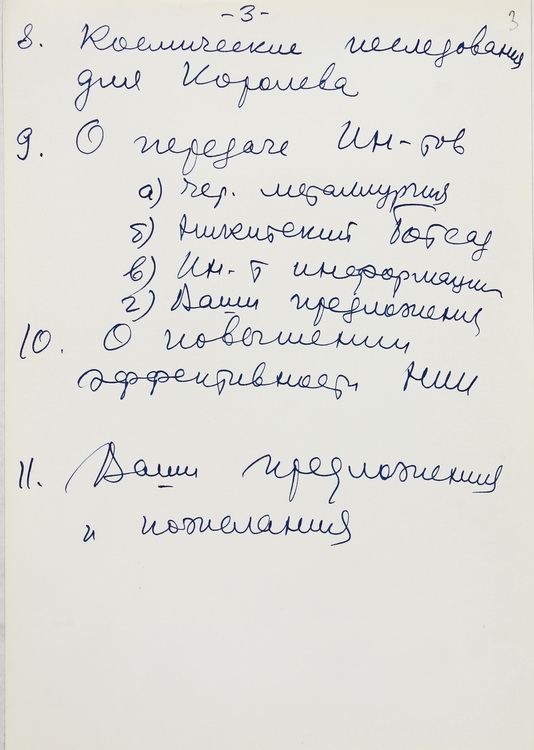 -3-
3
8. Космические исследования
для Королева
9. О передаче Ин-тов
а) Чер. металлургия
б) Никитский Ботсад
в) Ин-т информации
г) Ваши предложения
10. О повышении
эффективности НИИ
11. Ваши предложения
и пожелания